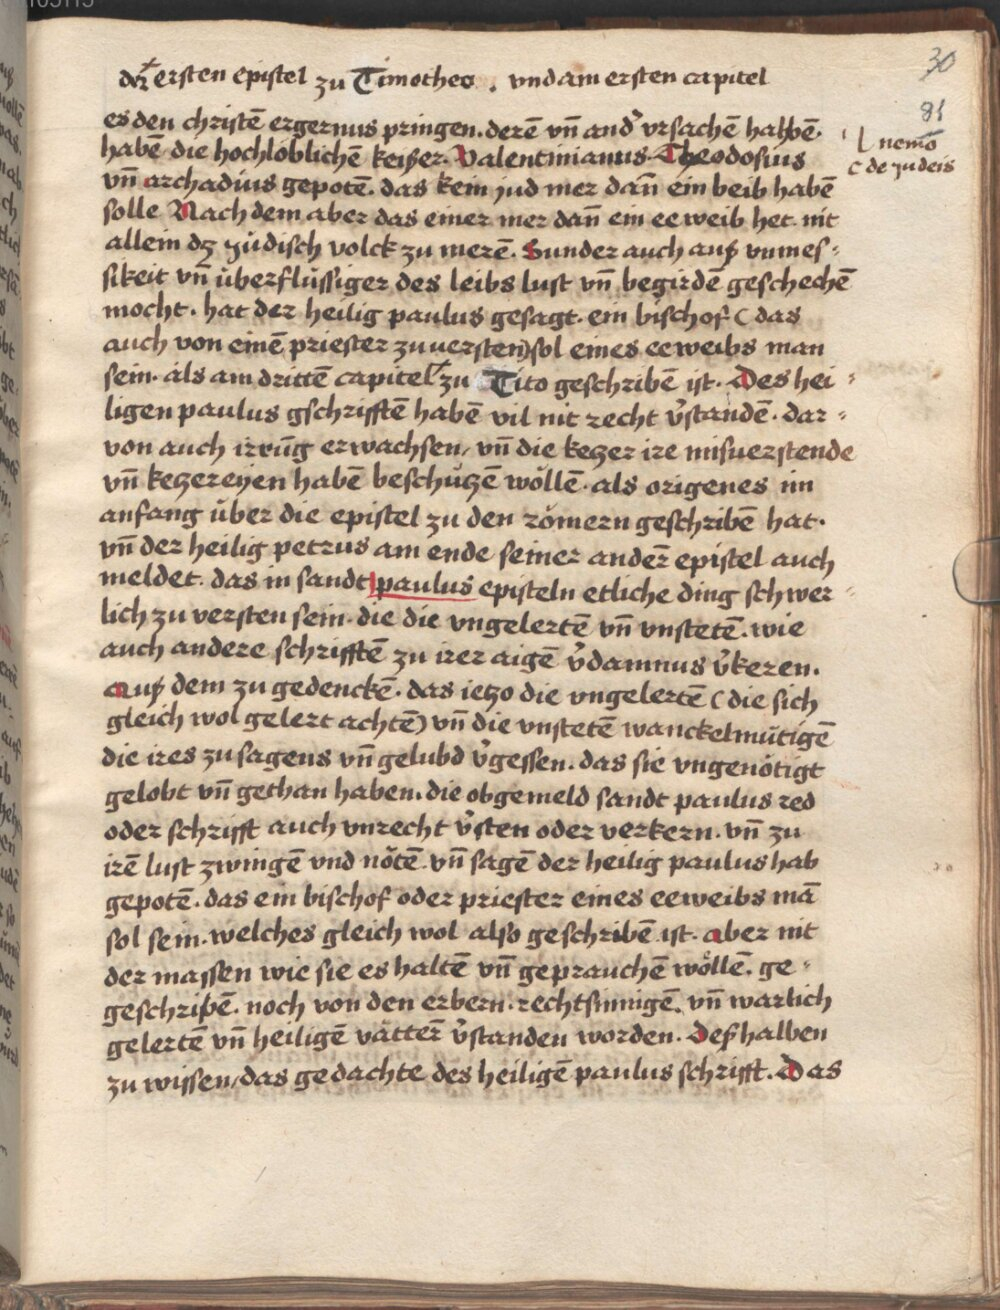 30
der ersten epistel zu Timotheo. vnd am ersten capitel
81
es den christē ergernus pringen. derē vn̄ and' vrsachē halbē.
l nemo
C de judeis
habē die hochloblichē keiser. Valentinianus. Theodosius
vn̄ archadius gepotē. das kein jud mer dan̄ ein beib habē
solle Nach dem aber das einer mer dan̄ ein eeweib het. nit
allein dz jüdisch volck zu merē. Sunder auch auß vnmes-
sikeit vn̄ überflüssiger des leibs lust vn̄ begirdē geschechē
mocht. hat der heilig paulus gesagt. ein bischof (das
auch von einē priester zuuersten) sol eines eeweibs man
sein. als am drittē capitel zu Tito geschribē ist. Des hei-
ligen paulus gschrifftē habē vil nit recht v'standē. dar-
von auch irrūg erwachsen, vn̄ die keczer ire misuerstende
vn̄ keczereyen habē beschüczē wöllē. als origenes im
anfang über die epistel zu den römern geschribē hat.
vn̄ der heilig petrus am ende seiner ander epistel auch
meldet. das in sandt paulus episteln etliche ding schwer-
lich zu versten sein. die die vngelertē vn̄ vnstetē. wie
auch andere schrifftē zu irer aigē v'damnus v'keren.
Auß dem zu gedenckē. das ietzo die vngelertē (die sich
gleich wol gelert achtē) vn̄ die vnstetē wanckelmütigē
die ires zusagens vn̄ gelubd v'gessen. das sie vngenötigt
gelobt vn̄ gethan haben. die obgemeld sandt paulus red
oder schrifft auch vnrecht v'sten oder verkern. vn̄ zu
irē lust zwingē vnd nötē. vn̄ sagē der heilig paulus hab
gepotē. das ein bischof oder priester eines eeweibs mā
sol sein. welches gleich wol also geschribē ist. aber nit
der massen wie sie es haltē vn̄ geprauchē wöllē. ge-
geschribē. noch von den erbern. rechtsinnigē. vn̄ warlich
gelertē vn̄ heiligē vätter v'standen worden. Deshalben
zu wissen, das gedachte des heiligē paulus schrifft. Das